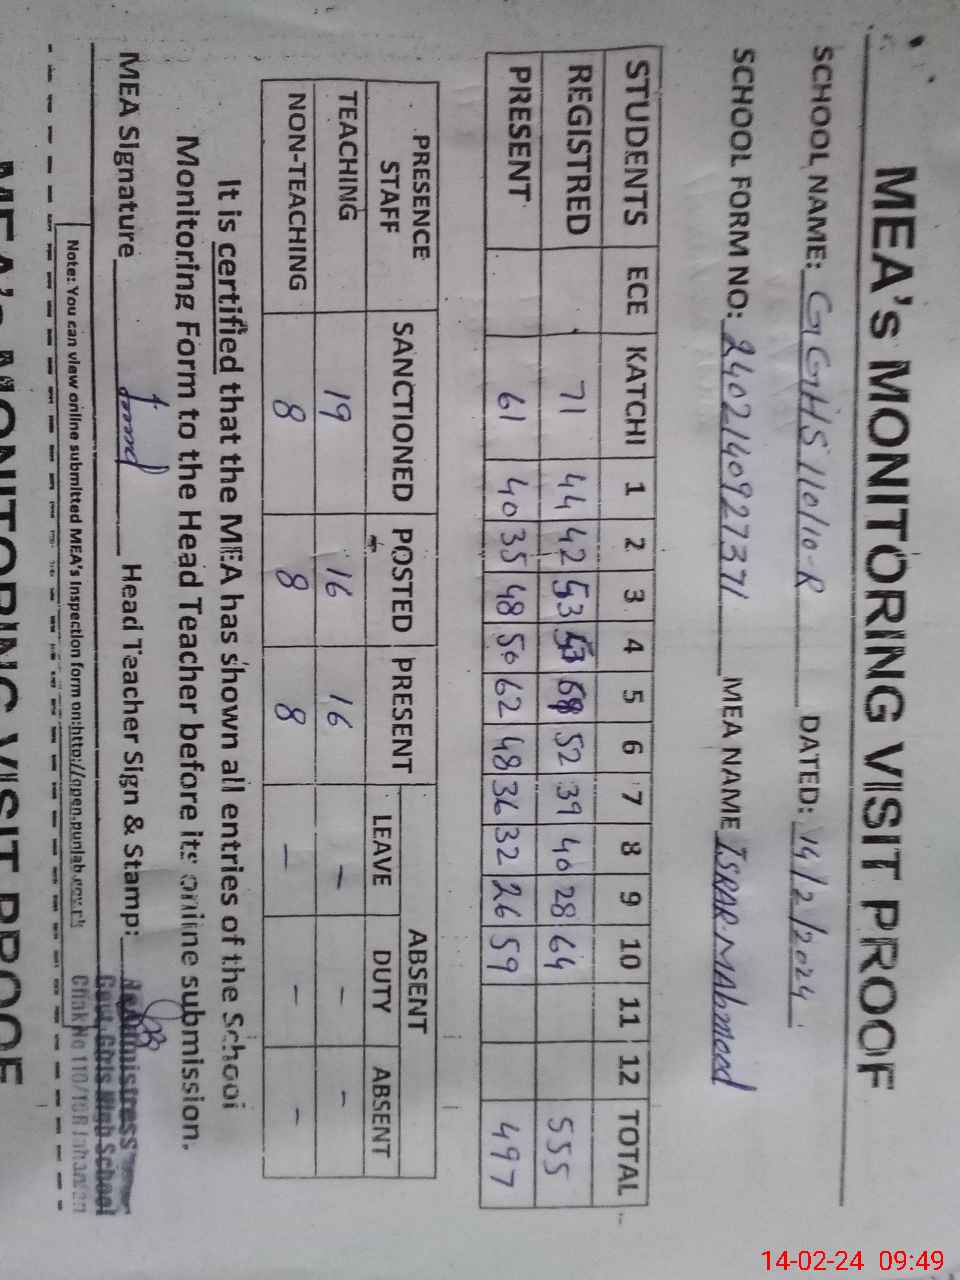 MEA's MONITORING VISIT PROOF
SCHOOL NAME: GGHS 110/10-R DATED: 14/2/2024
SCHOOL FORM NO: 2402140927371 MEA NAME ISRAR MAhmood
STUDENTS ECE KATCHI 1 2 3 4 5 6 7 8 9 10 11 12 TOTAL
REGISTRED 71 44 42 53 53 68 52 39 40 28 64 555
PRESENT 61 40 35 48 50 62 48 36 32 26 59 497
PRESENCE STAFF SANCTIONED POSTED PRESENT ABSENT
LEAVE DUTY ABSENT
TEACHING 19 16 16 - - -
NON-TEACHING 8 8 8 - - -
It is certified that the MEA has shown all entries of the School
Monitoring Form to the Head Teacher before its online submission.
MEA Signature Head Teacher Sign & Stamp:
Headmistress
Govt. Girls High School
Chak No 110/10R Jahanian
Note: You can view online submitted MEA's Inspection form on:http://open.punjab.gov.pk
MEA's MONITORING VISIT PROOF
14-02-24 09:49